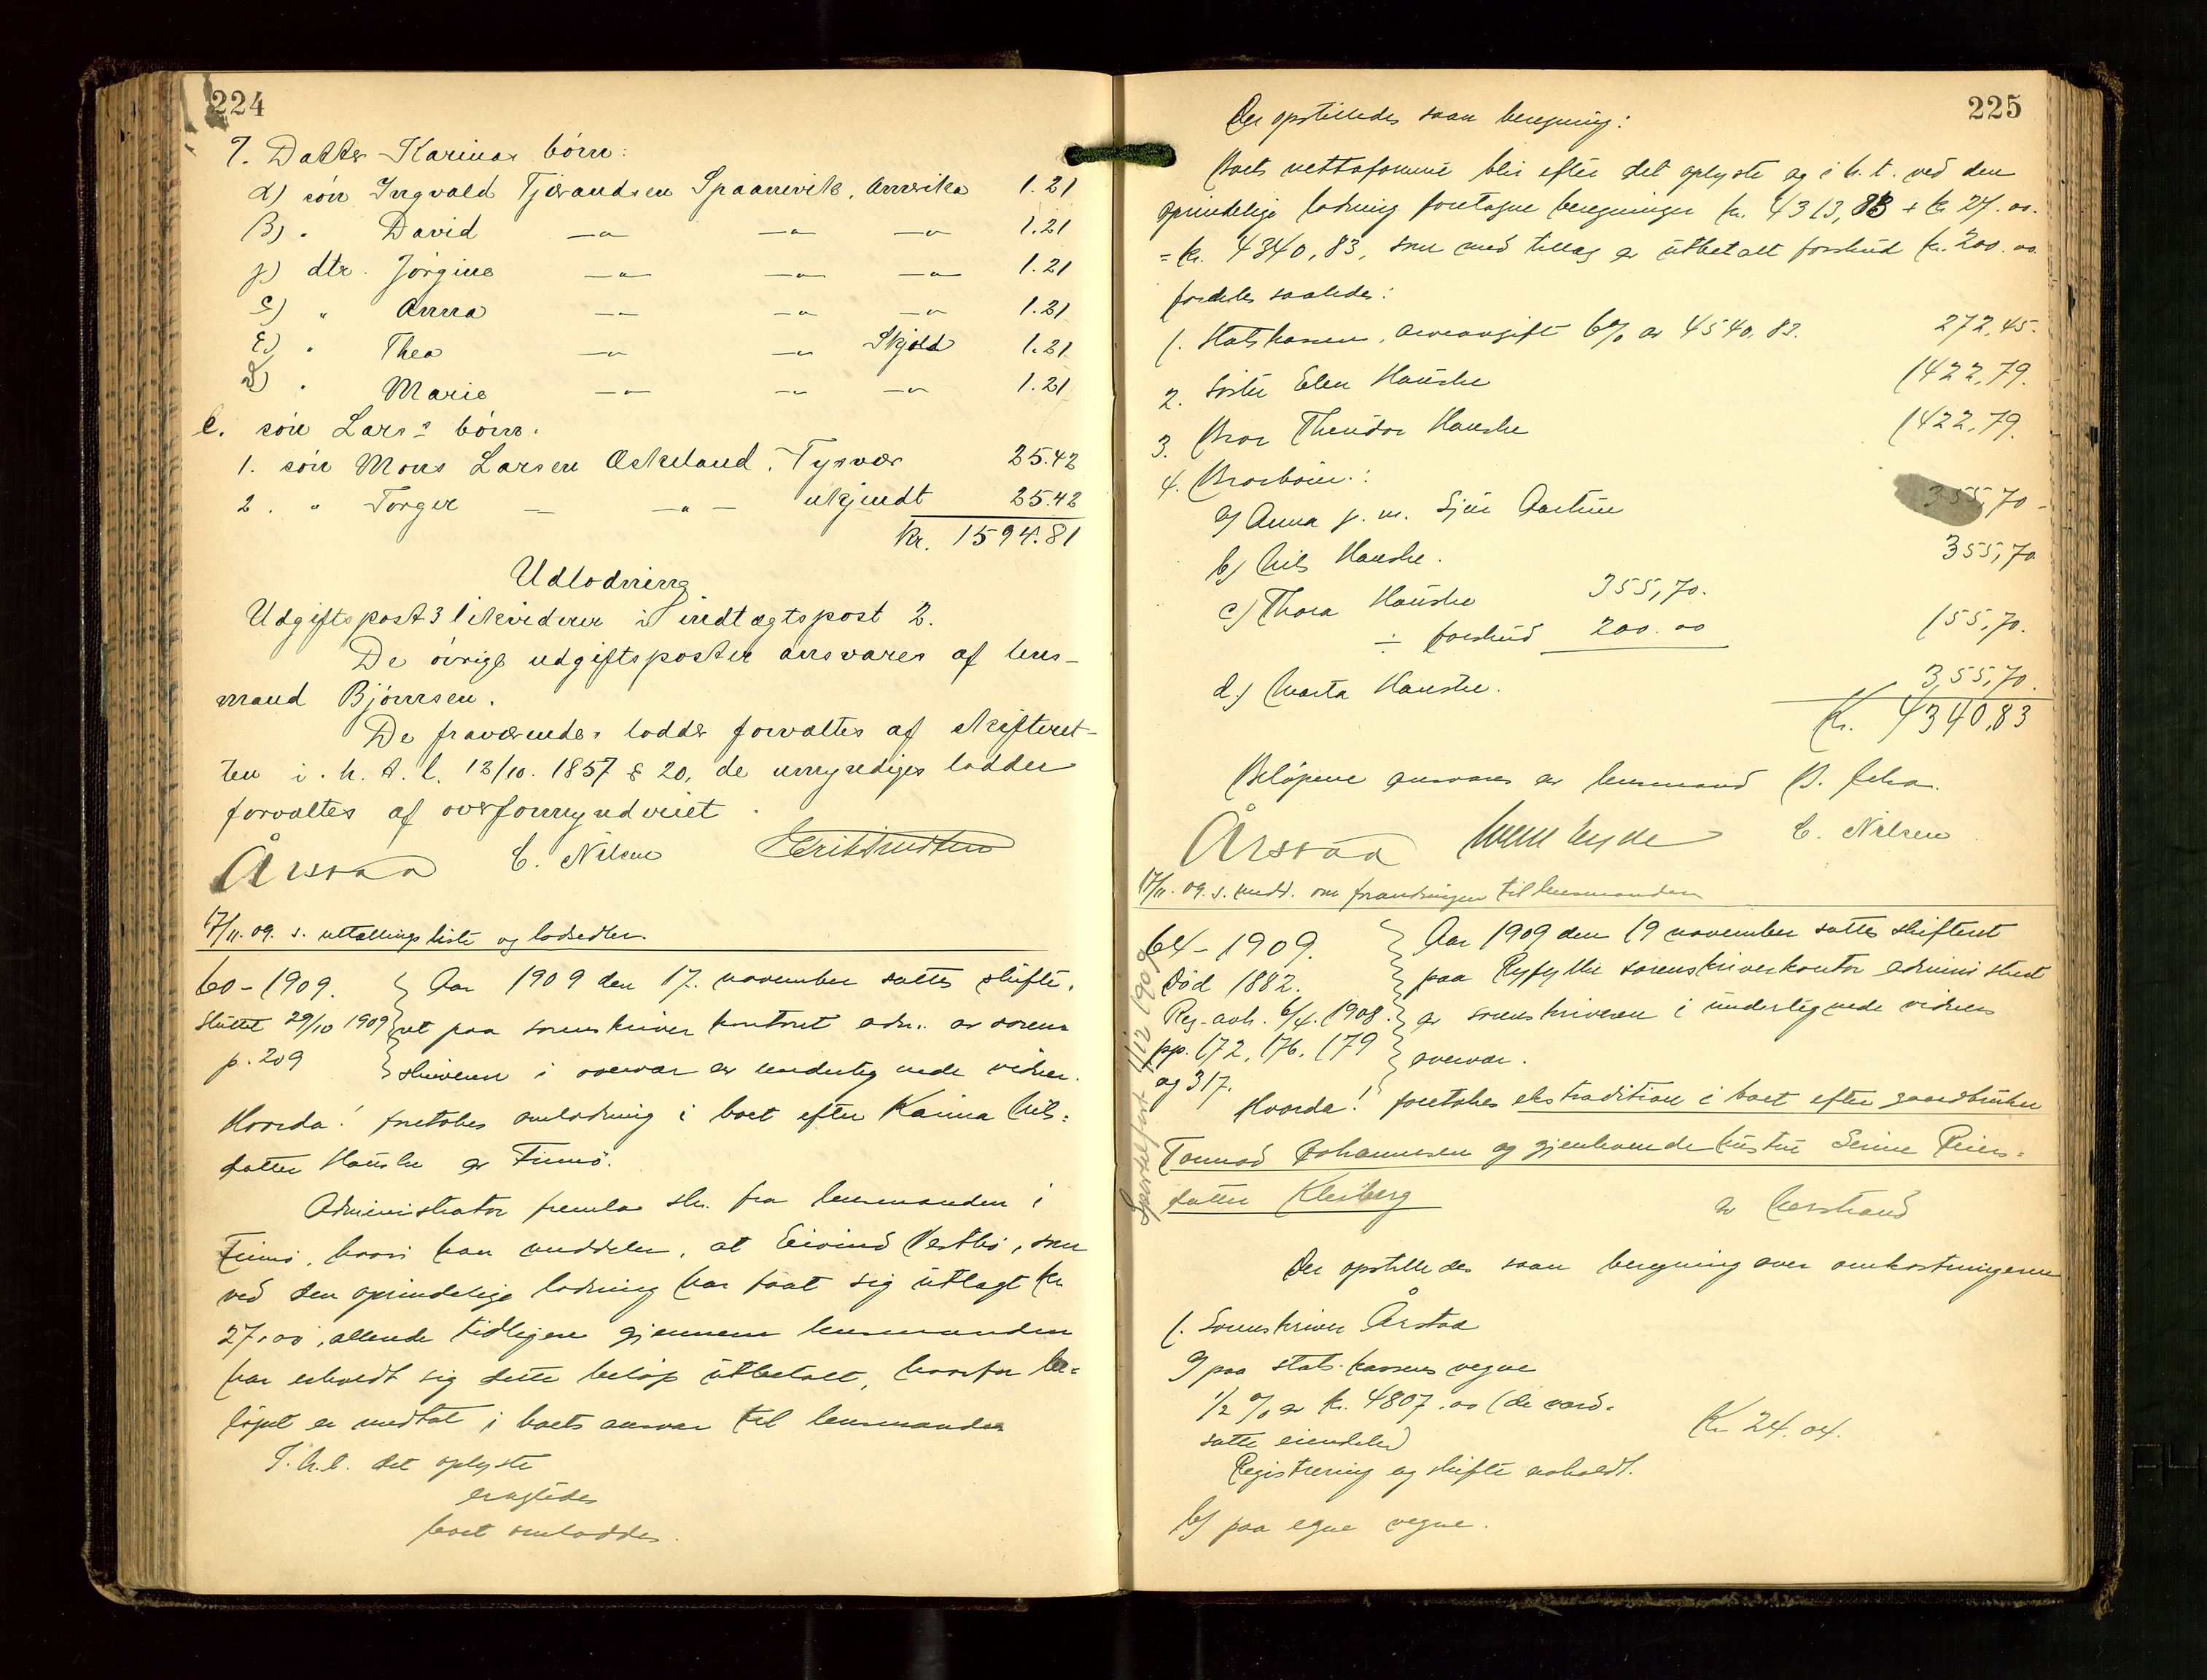 224
7. Datter Karinas børn:
α) søn Ingvald Tjerandsen Spaanevik, Amerika 1.21
β) " David —"— —"— —"— 1.21
γ) dtr. Jørgine —"— —"— —"— 1.21
δ) " Anna —"— —"— —"— 1.21
ε) " Thea —"— —"— Skjold 1.21
" Marie —"— —"— —"— 1.21
c. søn Lars's børn.
1. søn Mons Larsen Eskeland, Tysvær 25.42
2. " Torger — —"— ukjendt 25.42
Kr. 1594.81
Udlodning
Udgiftspost 3 likviderer i indtægtspost 2.
De øvrige udgiftsposter ansvares af lens-
mand Bjørnsen.
De fraværendes lodder forvaltes af skifteret-
ten i. h. t. l. 12/10. 1857 § 20, de umyndiges lodder
forvaltes af overformynderiet.
Årstad C. Nilsen
17/11. 09. s. uttællingsliste og lodsedler.
60 - 1909. Aar 1909 den 17. november sattes skifte-
Sluttet 29/10 1909 ret paa sorenskriverkontoret adm. av soren-
p. 209 skriveren i overvær av undertegnede vidner.
Hvorda! foretokes omlodning i boet efter Karina Nils-
datter Hauske av Finnø.
Administrator fremla skr. fra lensmanden i
Finnø, hvori han meddeler, at Eivind Vestbø, som
ved den oprindelige lodning har faat sig utlagt kr
27,00, allerede tidligere gjennem lensmanden
har erholdt sig dette beløp utbetalt, hvorfor be-
løpet er medtat i boets ansvar til lensmanden
I. h. t. det oplyste
eragtedes
boet omloddes.
225
Der opstilledes saan beregning:
Boets nettoformue blir efter det oplyste og i h. t. ved den
oprindelige lodning foretagne beregninger kr. 4313,83 + kr 27.00.
= kr. 4340,83, som med tillæg av utbetalt forskud kr. 200.00
fordeles saaledes:
1. Statskassen, arveavgift 6% av 4540,83. 272,45.
2. Søster Elen Hauske 1422,79.
3. Bror Theodor Hauske 1422,79.
4. Brorbørn:
a) Anna g. m. Sjur 355,70
b) Nils Hauske. 355,70
c) Thora Hauske 355,70.
÷ forskud 200.00 155,70.
d.) Marta Hauske. 355,70.
Kr. 4340,83
Beløpene ansvares av lensmand B.
Årstad C. Nilsen
17/11. 09. s. medd. om forandringen til lensmanden
64 - 1909. Aar 1909 den 19 november sattes skifteret
Død 1882. paa Ryfylke sorenskriverkontor administrert
Reg. avh. 6/4. 1908. av sorenskriveren i undertegnede vidners
pp. 172, 176, 179 overvær.
og 317.
Hvorda! foretokes ekstradition i boet efter gaardbruker
Tormod Johannesen og gjenlevende hustru Serine Reiers-
datter Kleiberg av Nerstrand
Der opstilledes saan beregning over omkostningerne
1. Sorenskriver Årstad
a) paa stats-kassens vegne
1/2 % av kr. 4807.00 (de værd-
satte eiendeler) Kr 24.04.
Registrering og skifte avholdt.
b) paa egne vegne.